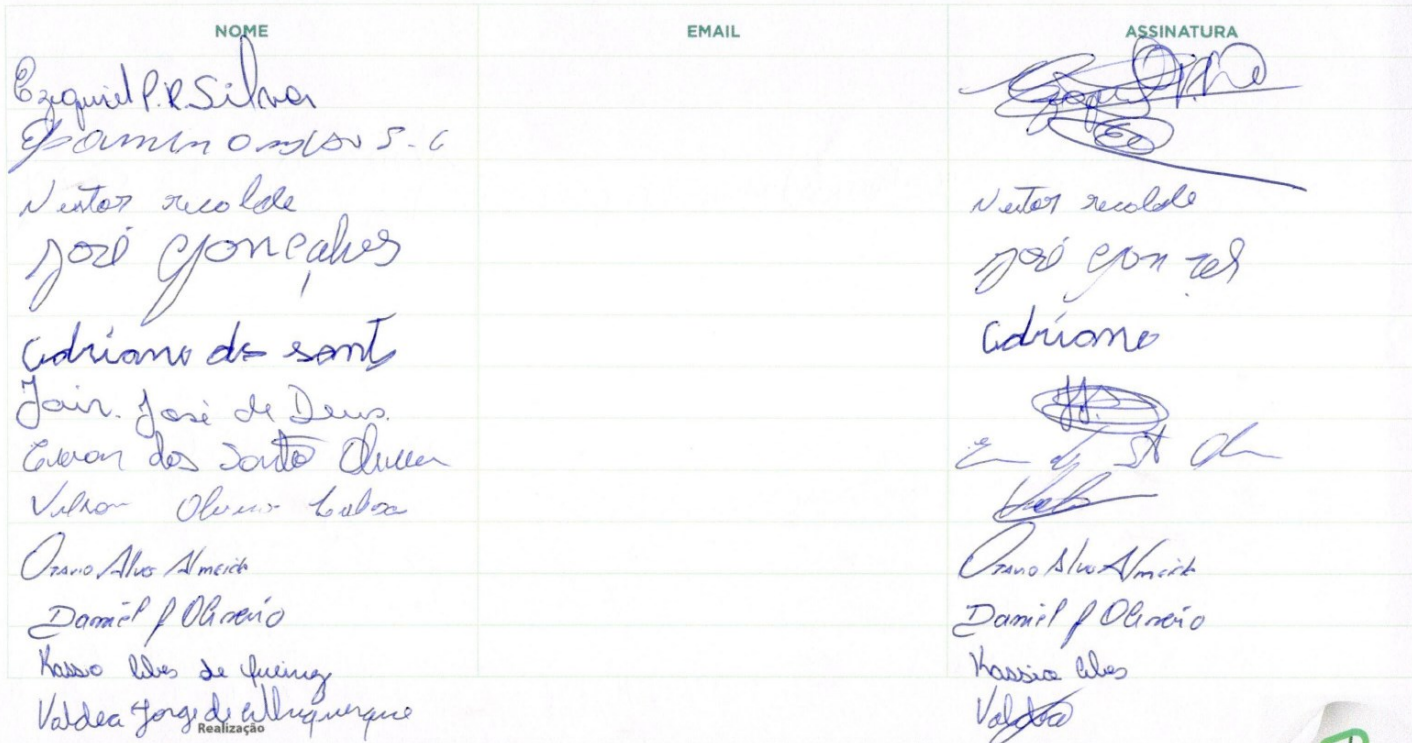 NOME EMAIL ASSINATURA
Ezequiel P.R. Silva
Epaminondas S. C
Nestor recolde Nestor recolde
José Gonçalves José
Adriano do sant Adriano
Jair José de Deus.
Everon dos Santo Oliveira
Vilson Oliveira
Otavio Alves Almeida Otavio Alves Almeida
Daniel P Olineiro Daniel P Olineiro
Kassio Alves de Queiroz Kassio Alves
Valdea Jorge de Albuquerque Valdea
Realização